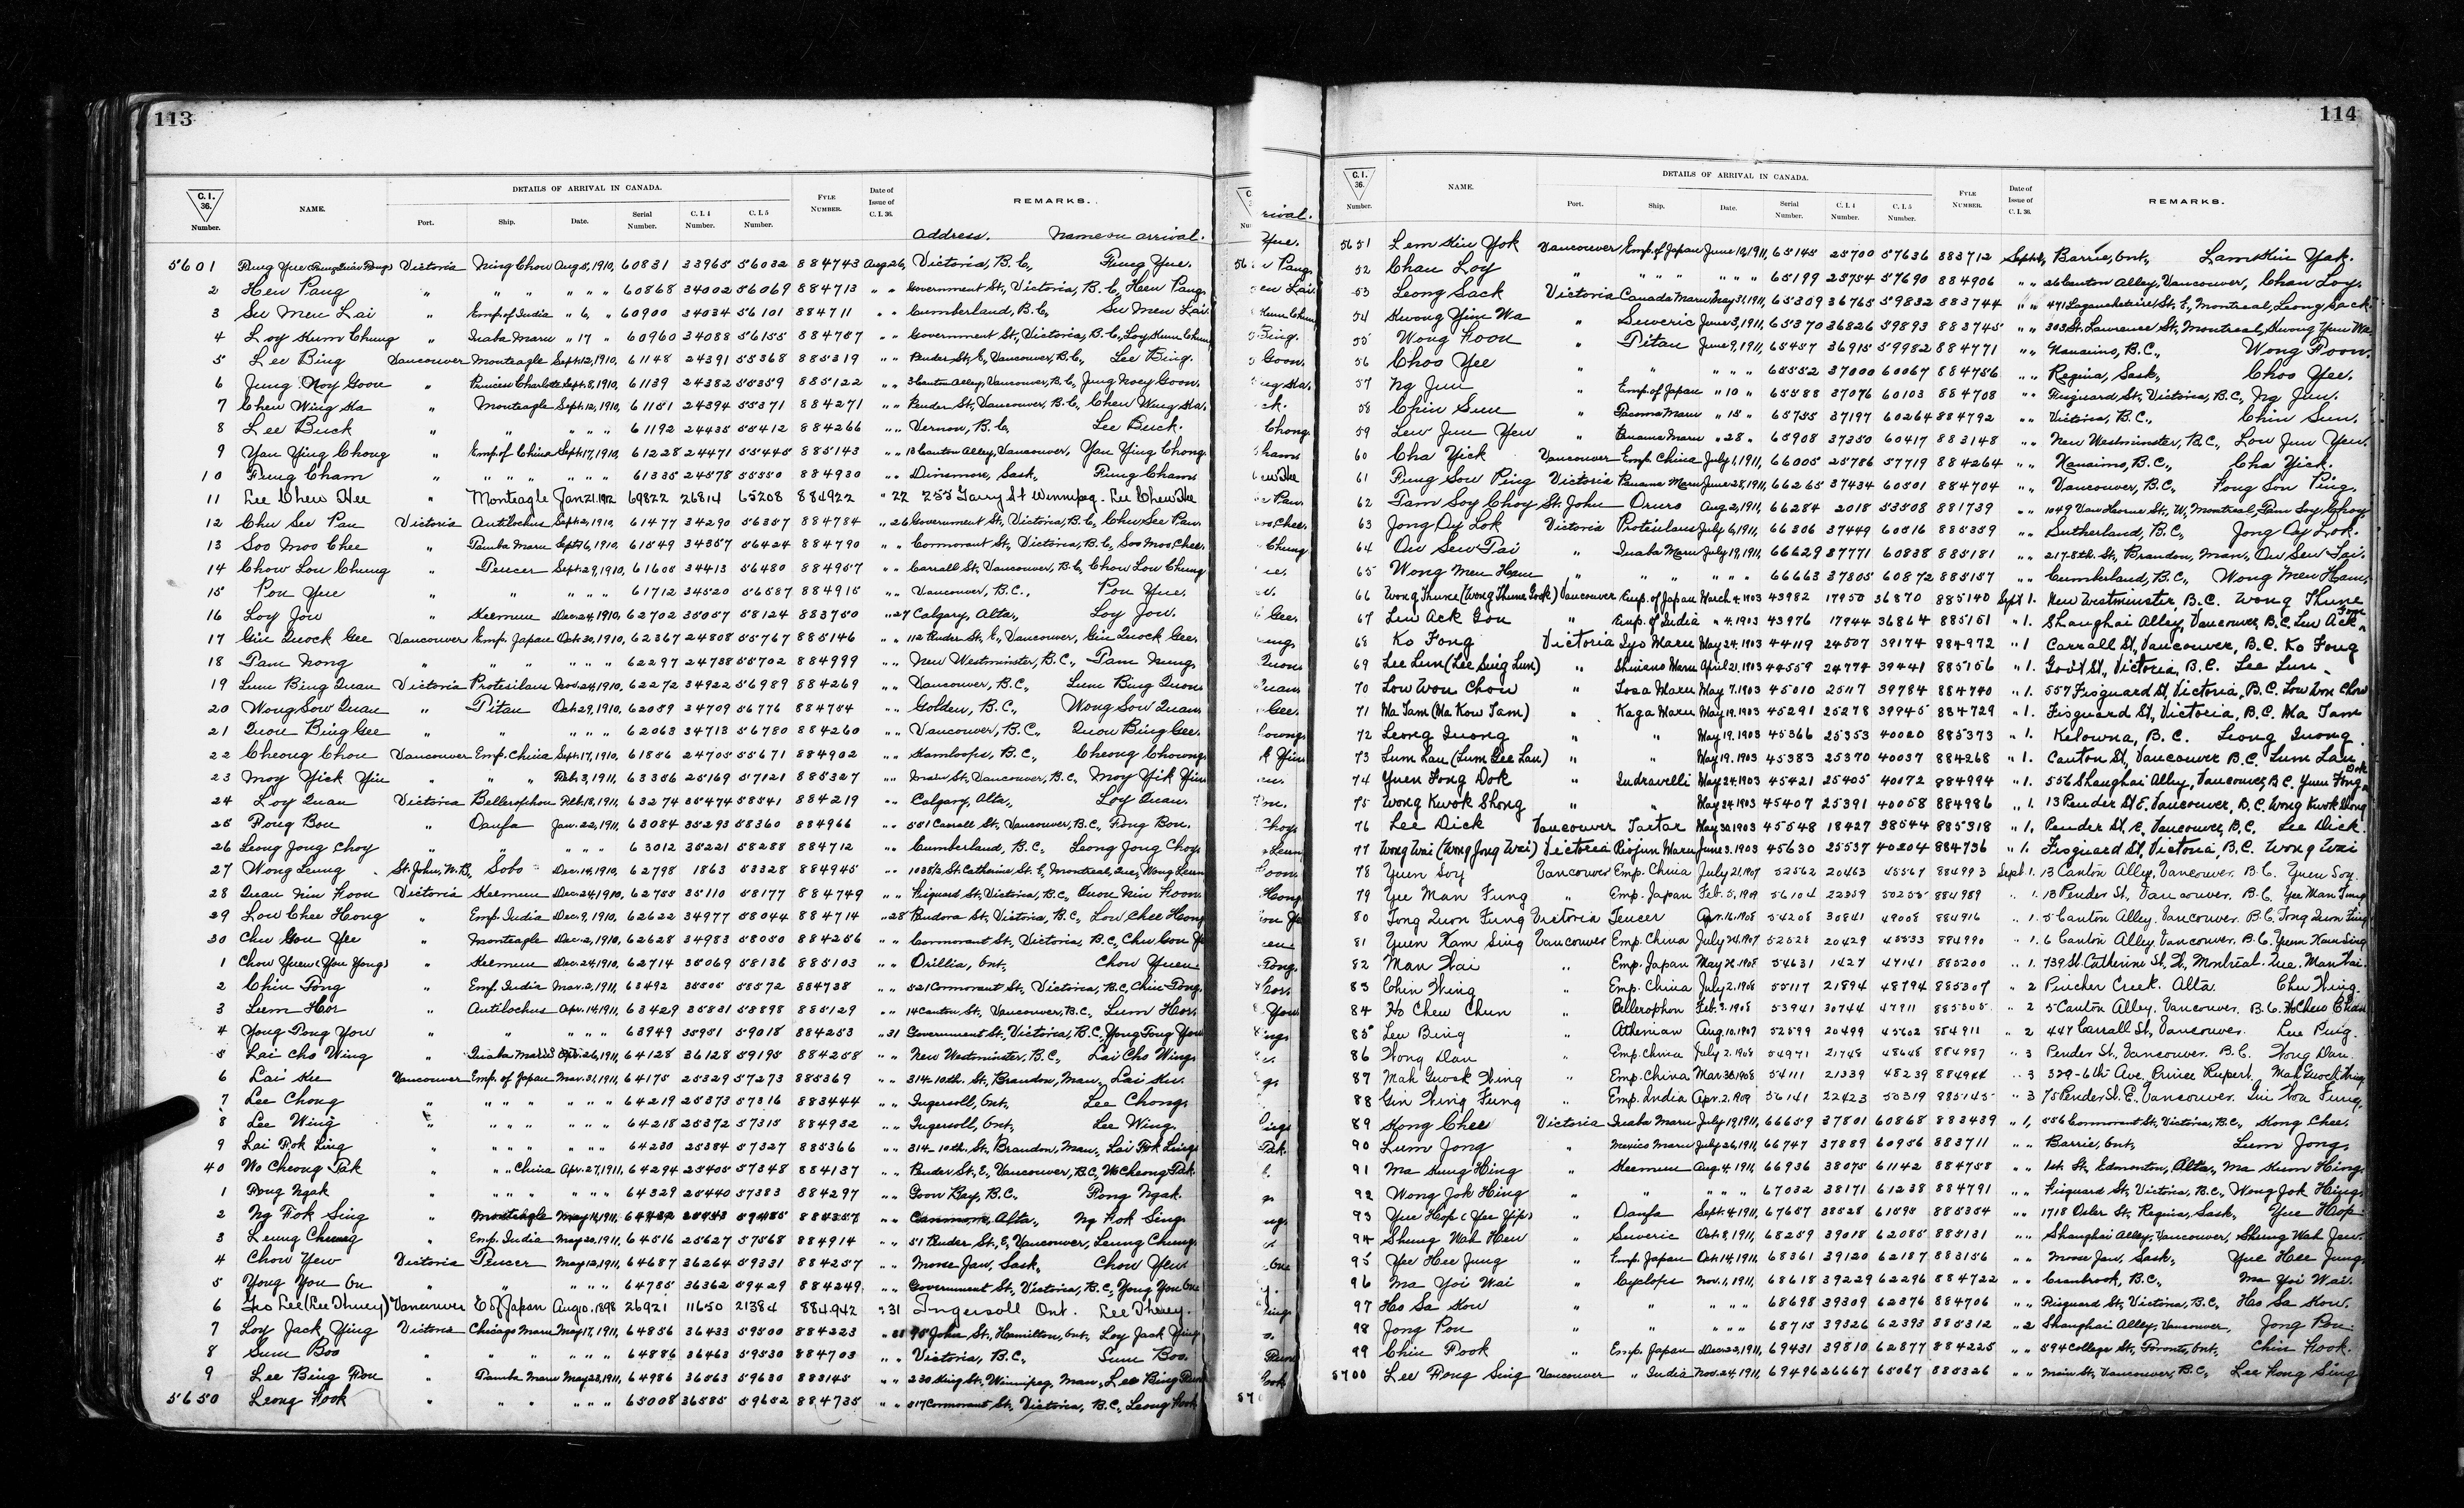 113
C. I. 36. Number. NAME. DETAILS OF ARRIVAL IN CANADA. Port. Ship. Date. Serial Number. C. I. 4 Number. C. I. 5 Number. FYLE NUMBER. Date of Issue of C. I. 36. REMARKS.
Address. Name on arrival.
5601 Fung Yue Victoria Ning Chow Aug. 5, 1910, 60831 33965 56032 884743 Aug 26, Victoria, B.C., Fung Yue.
2 Hew Pang " " " " " " 60868 34002 56069 884713 " " Government St., Victoria, B.C, Hew Pang.
3 Su Men Lai " Emp. of India " 6, " 60900 34034 56101 884711 " " Cumberland, B.C., Su Men Lai.
4 Loy Kum Chung " Inaba Maru " 17 " 60960 34088 56155 884787 " " Government St., Victoria, B.C, Loy Kum Chung
5 Lee Bing Vancouver Monteagle Sept. 12, 1910, 61148 24391 55368 885319 " " Pender St., E, Vancouver, B.C., Lee Bing.
6 Jung Noy Goon " Princess Charlotte Sept. 8, 1910, 61139 24382 55359 885122 " " 3 Canton Alley, Vancouver, B.C, Jung Noey Goon.
7 Chew Wing Ka " Monteagle Sept. 12, 1910, 61151 24394 55371 884271 " " Pender St., Vancouver, B.C., Chew Wing Ka.
8 Lee Buck " " " " " 61192 24435 55412 884266 " " Vernon, B.C, Lee Buck.
9 Yan Ying Chong " Emp. of China Sept. 17, 1910, 61228 24471 55445 885143 " " 13 Canton Alley, Vancouver, Yan Ying Chong.
10 Fung Cham " " " " " " " 61335 24578 55550 884930 " " Dinsmore, Sask., Fung Cham.
11 Lee Chew Hee " Monteagle Jan 21. 1912 69822 26814 65208 884922 " 22 255 Garry St Winnipeg. Lee Chew Hee
12 Chu See Pau Victoria Antilochus Sept. 2, 1910, 61477 34290 56357 884784 " 26 Government St., Victoria, B.C, Chu See Pau.
13 Soo Moo Chee " Tamba Maru Sept. 16, 1910, 61549 34357 56424 884790 " " Cormorant St., Victoria, B.C, Soo Moo Chee.
14 Chow Lou Chung " Teucer Sept. 29, 1910, 61605 34413 56480 884957 " " Carrall St., Vancouver, B.C, Chow Lou Chung
15 Pon Yue " " " " " 61712 34520 56587 884915 " " Vancouver, B.C., Pon Yue.
16 Loy Jow " Keemun Dec. 24, 1910, 62702 35057 58124 883750 " 27 Calgary, Alta., Loy Jow.
17 Gin Quock Gee Vancouver Emp. Japan Oct. 30, 1910, 62367 24808 55767 885146 " " 112 Pender St., E., Vancouver, Gin Quock Gee.
18 Tam Nong " " " " " " 62297 24738 55702 884999 " " New Westminster, B.C., Tam Nung.
19 Lum Bing Quan Victoria Protesilaus Nov. 24, 1910, 62272 34922 56989 884269 " " Vancouver, B.C., Lum Bing Quon.
20 Wong Sow Quan " Titan Oct. 29, 1910, 62059 34709 56776 884754 " " Golden, B.C., Wong Sow Quan.
21 Quon Bing Gee " " " " " 62063 34713 56780 884260 " " Vancouver, B.C., Quon Bing Gee.
22 Cheong Chou Vancouver Emp. China Sept. 17, 1910, 61856 24705 55671 884902 " " Kamloops, B.C., Cheong Chowng.
23 Moy Yick Yin " " " Feb. 3, 1911, 63356 25169 57121 885327 " " Main St., Vancouver, B.C., Moy Yik Yin
24 Loy Quan Victoria Bellerophon Feb. 18, 1911, 63274 35474 58541 884219 " " Calgary, Alta., Loy Quan.
25 Fong Bon " Oanfa Jan. 22, 1911, 63084 35293 58360 884966 " " 551 Carrall St., Vancouver, B.C., Fong Bon.
26 Leong Jong Choy " " " " " 63012 35221 58288 884712 " " Cumberland, B.C., Leong Jong Choy
27 Wong Leung St. John, N.B., Sobo Dec. 14, 1910, 62798 1863 53328 884945 " " 1035½ St. Catherine St. E, Montreal, Que, Wong Leun
28 Quan Nin Foon Victoria Keemun Dec. 24, 1910, 62755 35110 58177 884749 " " Fisguard St., Victoria, B.C., Quon Nin Foon.
29 Low Chee Hong " Emp. India Dec. 9, 1910, 62622 34977 58044 884714 " 28 Pandora St., Victoria, B.C., Low Chee Hong
30 Chu Gou Yee " Monteagle Dec. 2, 1910, 62628 34983 58050 884256 " " Cormorant St., Victoria, B.C., Chu Gou Ye
1 Chow Yuen (You Yong) " Keemun Dec. 24, 1910, 62714 35069 58136 885103 " " Orillia, Ont., Chow Yuen
2 Chin Tong " Emp. India Mar. 2, 1911, 63492 35505 58572 884738 " " 521 Cormorant St., Victoria, B.C, Chin Tong.
3 Lum Hor " Antilochus Apr. 14, 1911, 63429 35831 58898 885129 " " 14 Canton St., Vancouver, B.C., Lum Hor.
4 Yong Tong You " " " " " 63949 35951 59018 884253 " 31 Government St., Victoria, B.C., Yong Tong You
5 Lai Cho Wing " Inaba Maru Apr. 26, 1911, 64128 36128 59195 884258 " " New Westminster, B.C., Lai Cho Wing.
6 Lai Ku Vancouver Emp. of Japan Mar. 31, 1911, 64175 25329 57273 885369 " " 314-10th. St., Brandon, Man., Lai Ku.
7 Lee Chong " " " " " " " 64219 25373 57316 883444 " " Ingersoll, Ont., Lee Chong.
8 Lee Wing " " " " " " " 64218 25372 57315 884932 " " Ingersoll, Ont., Lee Wing.
9 Lai Fok Ling " " " " " " " 64230 25384 57327 885366 " " 314-10th St., Brandon, Man., Lai Fok Ling.
40 No Cheong Tak " " " China Apr. 27, 1911, 64294 25405 57348 884137 " " Pender St., E., Vancouver, B.C, No Cheong Tak.
1 Fong Ngak " " " " " " " 64329 25440 57383 884297 " " Goon Bay, B.C., Fong Ngak.
2 Ng Fok Sing " Monteagle May 14, 1911, 884357 " " Canmore, Alta., Ng Fok Sing.
3 Leung Cheung " Emp. India May 20, 1911, 64516 25627 57568 884914 " " 51 Pender St., E, Vancouver, Leung Chung.
4 Chow Yew Victoria Teucer May 12, 1911, 64687 36264 59331 884257 " " Moose Jaw, Sask., Chow Yew.
5 Yong You On " " " " " 64785 36362 59429 884249 " " Government St., Victoria, B.C, Yong You One
6 Gro Lee (Lee Thuey) Vancouver E of Japan Aug 10. 1898 26921 11650 21384 884942 " 31 Ingersoll Ont. Lee Thuey.
7 Loy Jack Ying Victoria Chicago Maru May 17, 1911, 64856 36433 59500 884223 " 31 95 John St., Hamilton, Ont., Loy Jack Ying
8 Sum Boo " " " " " 64886 36463 59530 884703 " " Victoria, B.C., Sum Boo.
9 Lee Bing Fou " Tamba Maru May 23, 1911, 64986 36563 59630 883145 " " 230 King St., Winnipeg, Man., Lee Bing
5650 Leong Fook " " " " " 65008 36585 59652 884735 " " 517 Cormorant St., Victoria, B.C., Leong Fook
114
C. I. 36. Number. NAME. DETAILS OF ARRIVAL IN CANADA. Port. Ship. Date. Serial Number. C. I. 4 Number. C. I. 5 Number. FYLE NUMBER. Date of Issue of C. I. 36. REMARKS.
5651 Lem Kin Yok Vancouver Emp. of Japan June 12, 1911, 65145 25700 57636 883712 Sept. 1, Barrie, Ont., Lam Kin Yak.
52 Chan Loy " " " " " " " 65199 25754 57690 884906 " " 26 Canton Alley, Vancouver, Chan Loy.
53 Leong Sack Victoria Canada Maru May 31, 1911, 65309 36765 59832 883744 " " 471 Lagauchetiere St., E., Montreal, Leong Sack.
54 Kwong Yim Wa " Suveric June 3, 1911, 65370 36826 59893 883745 " " 303 St. Lawrence St., Montreal, Kwong Yun Wa
55 Wong Foon " Titan June 9, 1911, 65457 36915 59982 884771 " " Nanaimo, B.C., Wong Foon.
56 Choo Yee " " " " " 65552 37000 60067 884756 " " Regina, Sask., Choo Yee.
57 Ng Jun " Emp. of Japan " 10 " 65588 37076 60103 884708 " " Fisguard St., Victoria, B.C., Ng Jun.
58 Chin Sun " Tacoma Maru " 15 " 65755 37197 60264 884792 " " Victoria, B.C., Chin Sun.
59 Lew Jun Yew " Panama Maru " 28 " 65908 37350 60417 883148 " " New Westminster, B.C., Low Jun Yen.
60 Cha Yick Vancouver Emp. China July 1, 1911, 66005 25786 57719 884264 " " Nanaimo, B.C., Cha Yick.
61 Fung Sow Ping Victoria Panama Maru June 28, 1911, 66265 37434 60501 884704 " " Vancouver, B.C., Fong Son Ping.
62 Tam Soy Choy St. John Oruro Aug. 2, 1911, 66284 2018 53508 881739 " " 1049 Van Horne St., W., Montreal, Tam Soy Choy
63 Jong Oy Lok Victoria Protesilaus July 6, 1911, 66306 37449 60516 885359 " " Sutherland, B.C., Jong Oy Lok.
64 Ow Sew Tai " Inaba Maru July 19, 1911, 66629 37771 60838 885181 " " 217-8th. St., Brandon, Man., Ow Sew Tai.
65 Wong Men Ham " " " " " " 66663 37805 60872 885157 " " Cumberland, B.C., Wong Men Ham.
66 Wong Thune (Wong Thune Gook) Vancouver Emp. of Japan March 4. 1903 43982 17950 36870 885140 Sept 1. New Westminster, B.C. Wong Thune
67 Lew Ack Gou " Emp. of India " 4. 1903 43976 17944 36864 885151 " 1. Shanghai Alley, Vancouver, B.C. Lew Ack Gow
68 Ko Fong Victoria Iyo Maru May 24. 1903 44119 24507 39174 884972 " 1 Carrall St, Vancouver, B.C. Ko Fong
69 Lee Lun (Lee Sing Lun) " Shinano Maru April 21. 1903 44559 24774 39441 885156 " 1. Govt St., Victoria, B.C. Lee Lun
70 Low Won Chow " Tosa Maru May 7. 1903 45010 25117 39784 884740 " 1. 557 Fisguard St, Victoria, B.C. Low Won Chow
71 Ma Tam (Ma Kow Tam) " Kaga Maru May 19. 1903 45291 25278 39945 884729 " 1. Fisguard St., Victoria, B.C. Ma Tam
72 Leong Quong " " May 19. 1903 45366 25353 40020 885373 " 1. Kelowna, B.C. Leong Quong
73 Lum Lau (Lum Gee Lau) " " May 19. 1903 45383 25370 40037 884268 " 1. Canton St, Vancouver B.C. Lum Lau
74 Yuen Fong Dok " Indravelli May 24. 1903 45421 25405 40072 884994 " 1. 556 Shanghai Alley, Vancouver, B.C. Yuen Fong Dok
75 Wong Kwok Shong " " May 24. 1903 45407 25391 40058 884986 " 1. 13 Pender St E. Vancouver, B.C. Wong Kwok Shong
76 Lee Dick Vancouver Tartar May 30. 1903 45548 18427 38544 885318 " 1. Pender St. E, Vancouver, B.C. Lee Dick.
77 Wong Wai (Wong Jong Wai) Victoria Riojun Maru June 3. 1903 45630 25537 40204 884736 " 1. Fisguard St, Victoria, B.C. Wong Wai
78 Yuen Soy Vancouver Emp. China July 21. 1907 52562 20463 45567 884993 Sept. 1. 13 Canton Alley, Vancouver. B.C. Yuen Soy.
79 Yee Man Fung " Emp. Japan Feb. 5, 1909 56104 22359 50255 884989 " 1. 13 Pender St., Vancouver. B.C. Yee Man Fung
80 Tong Quon Fung Victoria Teucer Apr. 16. 1908 54208 30841 49008 884916 " 1. 5 Canton Alley. Vancouver. B.C. Tong Quon Fung
81 Yuen Kam Sing Vancouver Emp. China July 24. 1907 52528 20429 45533 884990 " 1. 6 Canton Alley, Vancouver. B.C. Yuen Kam Sing
82 Man Wai " Emp. Japan May 26. 1908 54631 1427 47141 885200 " 1. 739 St. Catherine St., W., Montreal. Que. Man Wai.
83 Chin Wing " Emp. China July 2. 1908 55117 21894 48794 885307 " 2 Pincher Creek. Alta. Chin Wing.
84 Ho Chew Chun " Bellerophon Feb. 3. 1908 53941 30744 47911 885305 " 2 5 Canton Alley. Vancouver. B.C. Ho Chew Chun
85 Leu Bing " Athenian Aug. 10. 1907 52599 20499 45602 884911 " 2 447 Carrall St., Vancouver. Leu Ping.
86 Wong Dan " Emp. China July 2. 1908 54971 21748 48648 884987 " 3 Pender St., Vancouver. B.C. Wong Dan.
87 Mah Guock Wing " Emp. China Mar. 30. 1908 54111 21339 48239 884944 " 3 329-6th Ave. Prince Rupert. Mah Guock Wing
88 Gin Wing Fung " Emp. India Apr. 2. 1909 56141 22423 50319 885145 " 3 75 Pender St. E. Vancouver. Gin Woa Fung.
89 Kong Chee Victoria Inaba Maru July 19, 1911, 66659 37801 60868 883439 " 1, 556 Cormorant St., Victoria, B.C., Kong Chee.
90 Lum Jong " Mexico Maru July 26, 1911, 66747 37889 60956 883711 " " Barrie, Ont., Lum Jong.
91 Ma Kung Hing " Keemun Aug. 4, 1911, 66936 38075 61142 884758 " " 1st. St., Edmonton, Alta., Ma Kum Hing.
92 Wong Jok Hing " " " " " 67032 38171 61238 884791 " " Fisguard St., Victoria, B.C., Wong Jok Hing.
93 Yue Hop (Yee Yip) " Oanfa Sept. 4, 1911, 67657 38528 61595 885354 " " 1718 Osler St., Regina, Sask., Yue Hop.
94 Shung Wah Hew " Suveric Oct. 8, 1911, 68259 39018 62085 885131 " " Shanghai Alley, Vancouver, Shung Wah Jew.
95 Yee Hee Jung " Emp. Japan Oct. 14, 1911, 68361 39120 62187 883156 " " Moose Jaw, Sask., Yue Hee Jung.
96 Ma Yoi Wai " Cyclops Nov. 1, 1911, 68618 39229 62296 884722 " " Cranbrook, B.C., Ma Yoi Wai.
97 Ho Sa Kow " " " " " 68698 39309 62376 884706 " " Fisguard St., Victoria, B.C., Ho Sa Kow.
98 Jong Pou " " " " " 68715 39326 62393 885312 " 2 Shanghai Alley, Vancouver, Jong Pou.
99 Chin Fook " Emp. Japan Dec. 23, 1911, 69431 39810 62877 884225 " " 594 College St., Toronto, Ont., Chin Fook.
5700 Lee Fong Sing Vancouver " India Nov. 24, 1911, 69496 26667 65067 885326 " " Main St., Vancouver, B.C., Lee Fong Sing